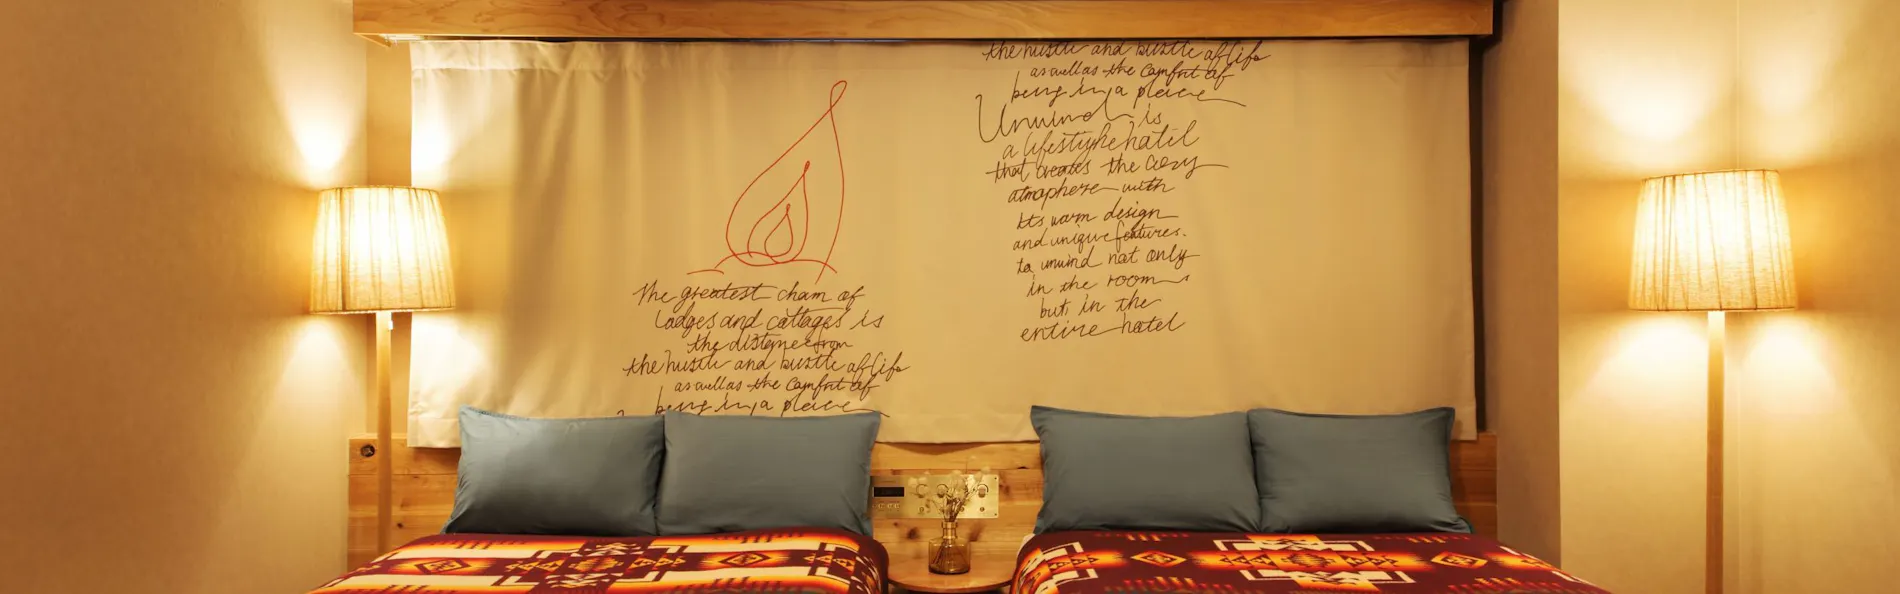 The greatest cham of
Lodges and cottages is
the distance from
the hustle and bustle of life
as well as the comfort of
being in a pleace
the hustle and bustle of life
as well as the comfort of
being in a pleace
Unwind is
a lifestyle hotel
that creates the cozy
atmophere with
its warm design
and unique features.
to unwind not only
in the room
but in the
entire hotel